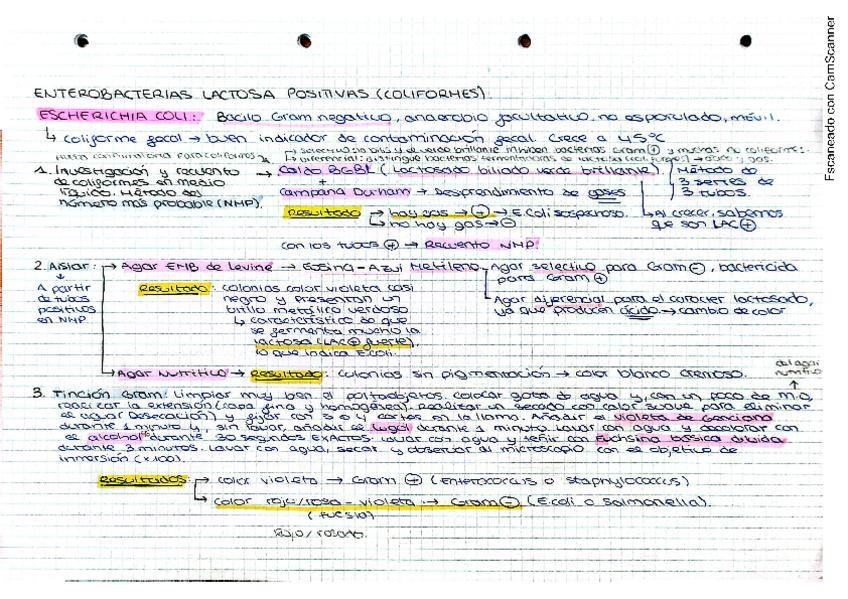 ENTEROBACTERIAS LACTOSA POSITIVAS (COLIFORMES)
ESCHERICHIA COLI: Bacilo Gram negativo, anaerobio facultativo. no esporulado, móvil.
↳ coliforme fecal → buen indicador de contaminación fecal. Crece a 45ºC
→ selectivo: la bilis y el verde brillante inhiben bacterias Gram ⊕ y muchas no coliformes.
prueba confirmativa para coliformes
→ Diferencial: distingue bacterias fermentadoras de lactosa → ácido y gas.
1. Investigación y recuento → Caldo BGBL (Lactosado biliado verde brillante) Método de
de coliformes en medio + 3 series de
líquido. Método del campana Durham → Desprendimiento de gases 3 tubos.
número más probable (NMP).
Resultado → hay gas → ⊕ → E.Coli sospechoso. ↳ Al crecer, sabemos
→ no hay gas → ⊖ que son LAC ⊕
con los tubos ⊕ → Recuento NMP.
2. Aislar: → Agar EMB de Levine → Eosina-Azul Metileno Agar selectivo para Gram ⊖, bactericida
para Gram ⊕
A partir Resultado: colonias color violeta casi
de tubos negro y presentan un Agar diferencial para el carácter lactosado,
positivos brillo metálico verdoso ya que producen ácido → cambio de color
en NMP ↳ característico de que
se fermenta mucho la
lactosa (LAC ⊕ fuerte),
lo que indica E.coli.
→ Agar Nutritivo → Resultado: colonias sin pigmentación → color blanco cremoso.
del agar
nutritivo
3. Tinción Gram: Limpiar muy bien el portaobjetos. colocar gota de agua y, con un poco de m.o,
realizar la extensión (capa fina y homogénea). Realizar un secado con calor suave para eliminar
el agua (desecación) y fijar con 3 o 4 cortes en la llama. Añadir el violeta de genciana
durante 1 minuto y, sin lavar, añadir el lugol durante 1 minuto. Lavar con agua y decolorar con
el alcohol durante 30 segundos EXACTOS. Lavar con agua y teñir con Fuchsina básica diluida
durante 3 minutos. Lavar con agua, secar y observar al microscopio con el objetivo de
inmersión (x100)
Resultados: → color violeta → Gram ⊕ (Enterococcus o staphylococcus)
→ color rojo/rosa-violeta → Gram ⊖ (E.coli o Salmonella).
(fucsia)
Rojo/rosado.
Escaneado con CamScanner